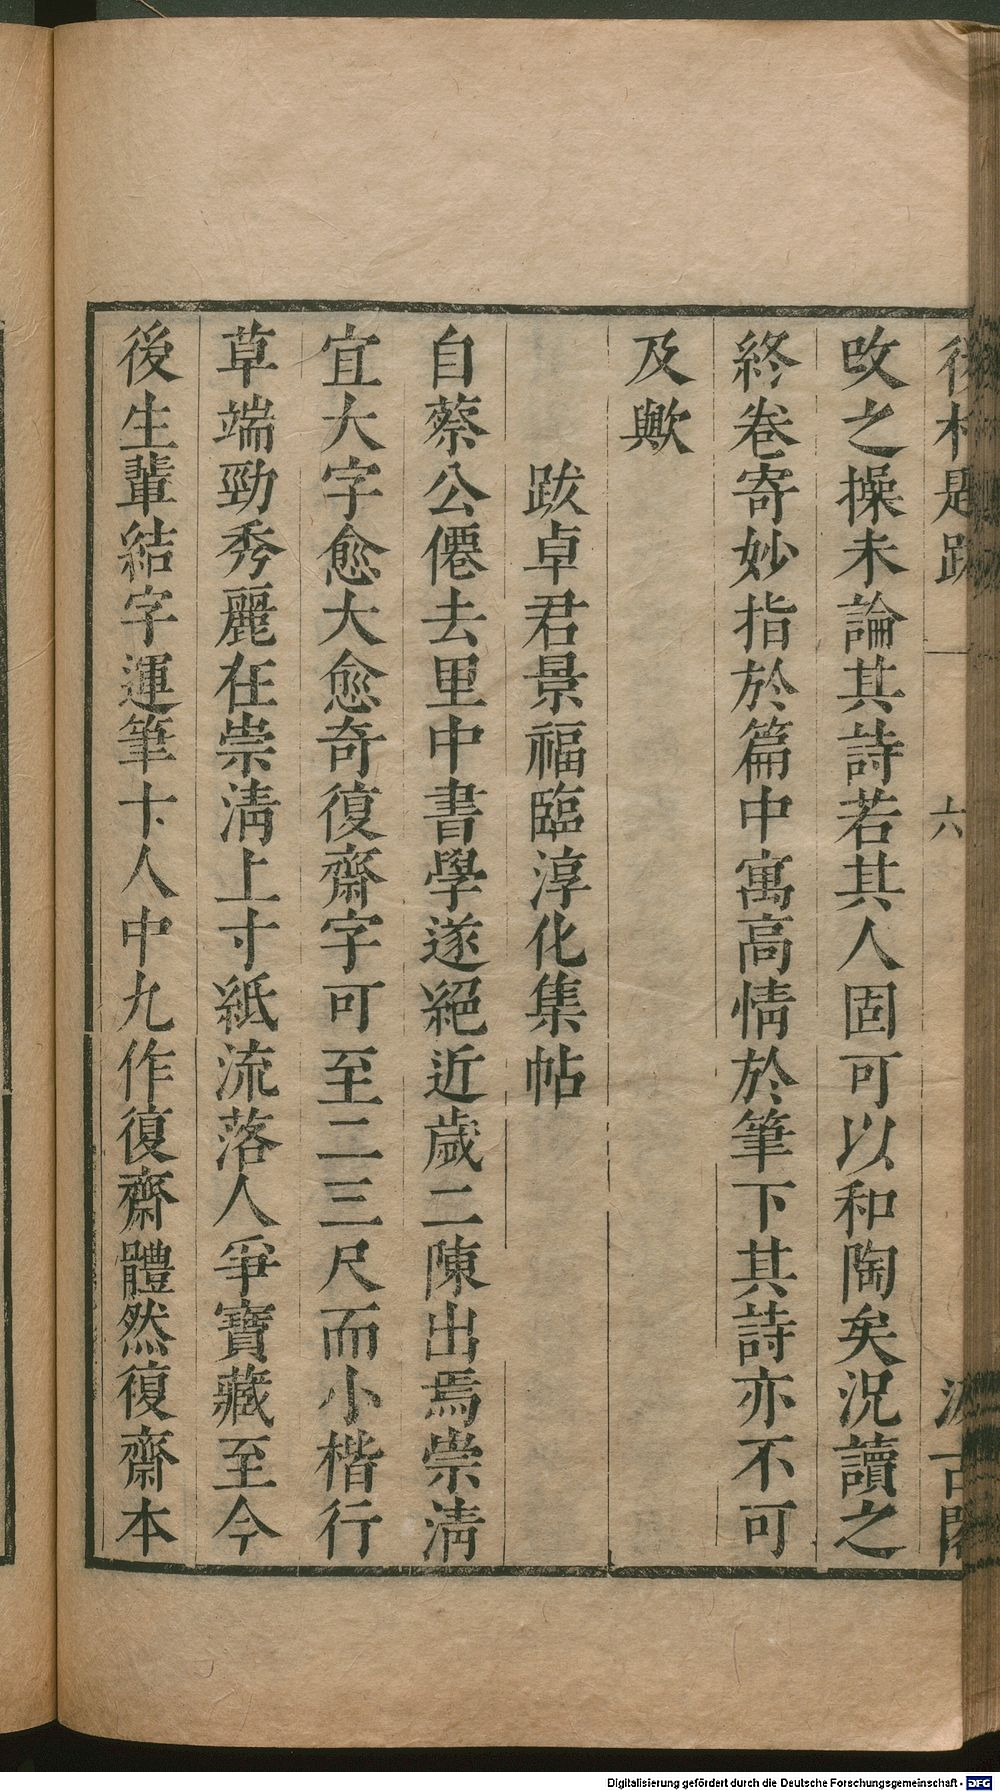 後村題跋 六 汲古閣
改之操未論其詩若其人固可以和陶矣況讀之
終卷寄妙指於篇中寓高情於筆下其詩亦不可
及歟
跋卓君景福臨淳化集帖
自蔡公僊去里中書學遂絕近歲二陳出焉崇淸
宜大字愈大愈奇復齋字可至二三尺而小楷行
草端勁秀麗在崇淸上寸紙流落人爭寶藏至今
後生輩結字運筆十人中九作復齋體然復齋本
Digitalisierung gefördert durch die Deutsche Forschungsgemeinschaft - DFG